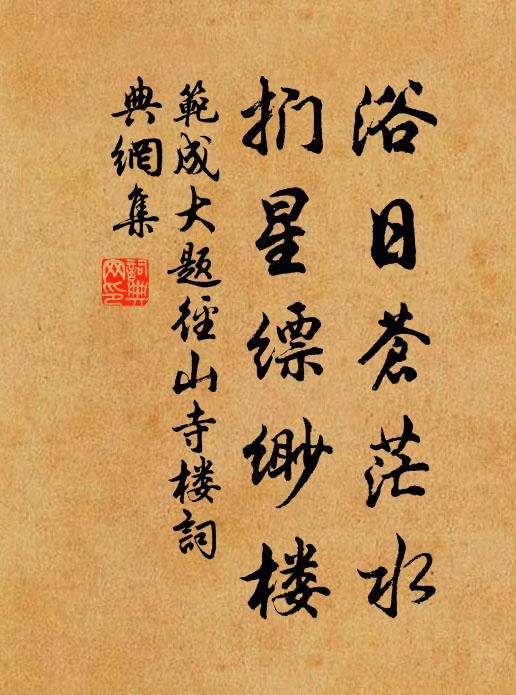 浴日苍茫水
扪星缥缈楼
範成大题徑山寺楼詞
典網集
詞典網印